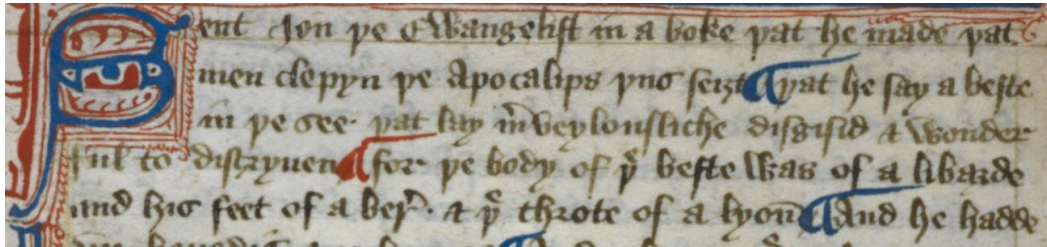 Sent Jon þe Ewangelist in a boke þat he made þat
men clepyn þe Apocalips þus seizt ¶ þat he say a beste
in þe see. þat lay m̄veylousliche disgisid & wonder
ful to distryuen ¶ for þe body of þͤ beste was of a libarde
and his feet of a ber̕. & þͤ throte of a lyon̄ ¶ And he hadde